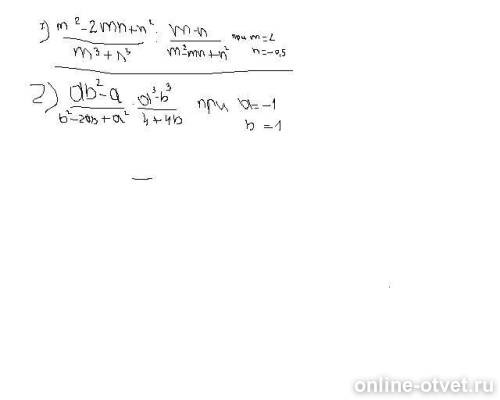 1) (m² - 2mn + n²)/(m³ + n³) : (m - n)/(m² - mn + n²) при m = 2
n = -0,5
2) (ab² - a)/(b² - 2ab + a²) · (a³ - b³)/(4 + 4b) при a = -1
b = 1
online-otvet.ru